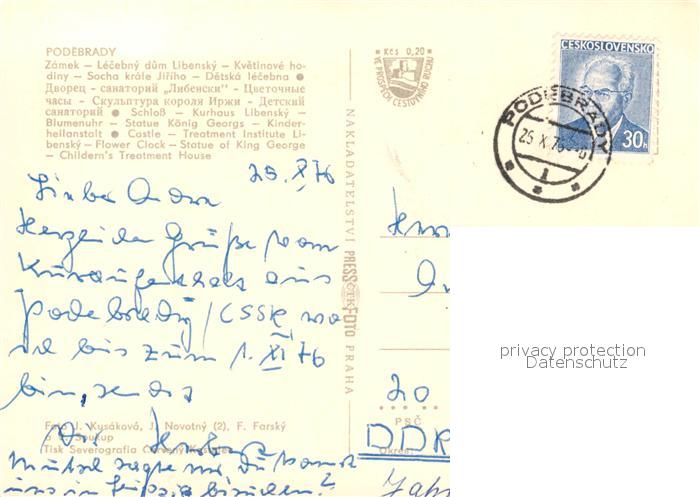 PODĚBRADY
Zámek – Léčebný dům Libenský – Květinové ho-
diny – Socha krále Jiřího – Dětská léčebna ●
Дворец – санаторий „Либенски" – Цветочные
часы – Скульптура короля Иржи – Детский
санаторий ● Schloß – Kurhaus Libenský –
Blumenuhr – Statue König Georgs – Kinder-
heilanstalt ● Castle – Treatment Institute Li-
benský – Flower Clock – Statue of King George
– Childern's Treatment House
Kčs 0,20
VE PROSPĚCH CESTOVNÍHO RUCHU
ČESKOSLOVENSKO
30h
PODĚBRADY
25.X.76
1
NAKLADATELSTVÍ PRESSFOTO PRAHA
ČTK
25. X 76
Lieber
Herzliche Grüße vom
Kuraufenthalt aus
Podebrady / CSSR wo
ich bis zum 1. XI 76
bin, sendet
Dir
Foto J. Kusáková, J. Novotný (2), F. Farský
a Soukup
Tisk Severografia Červený Kostelec
sagte mir Du kannst
uns in Leipzig besuchen?
20
PSČ
DDR
Okres:
privacy protection
Datenschutz